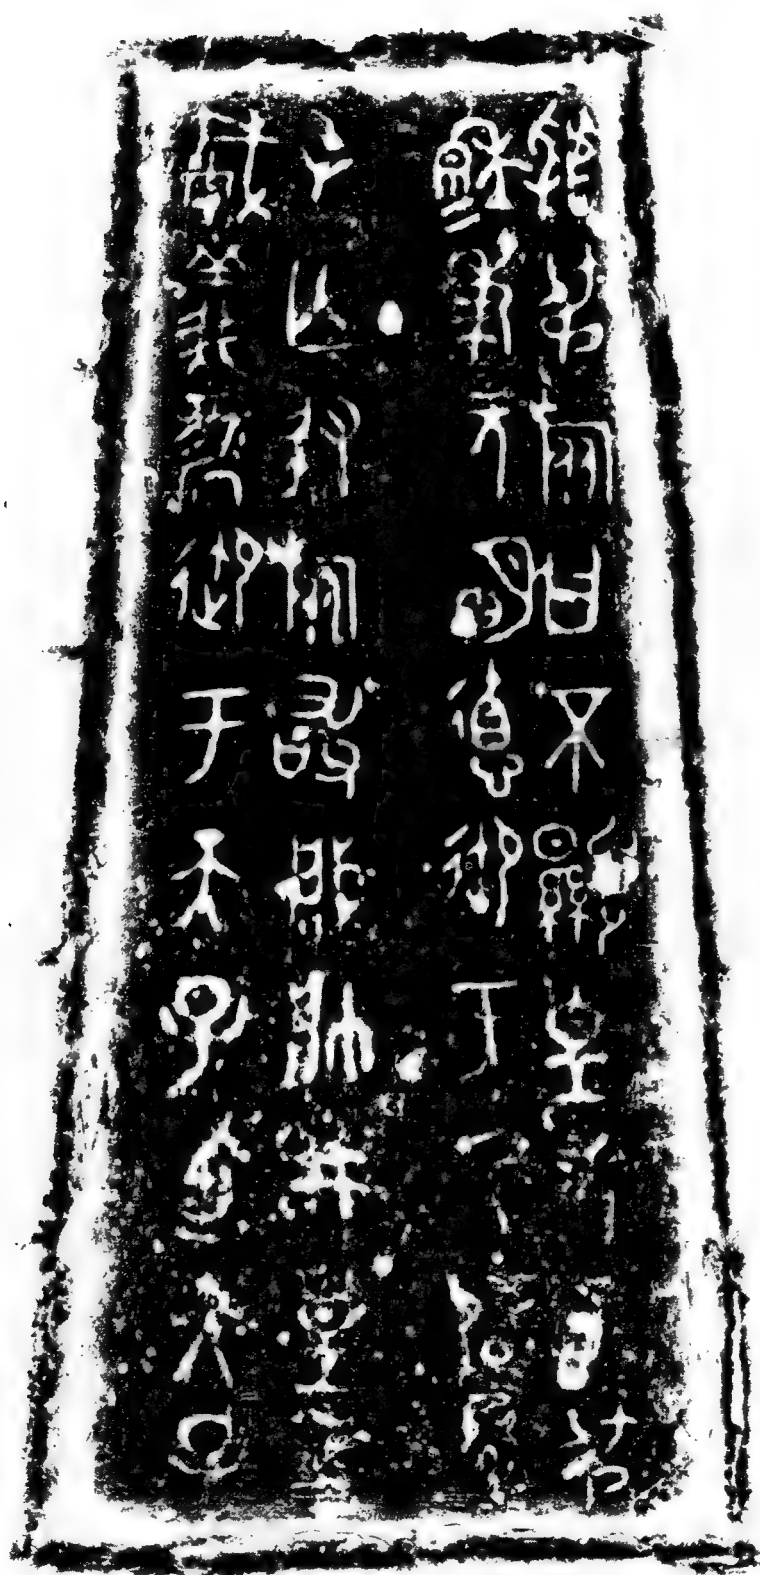 虢弔旅曰不顯皇考叀弔
穆=秉元明德御于氒辟䙷
屯亡敃旅敢肈帥井皇考
威義御于天子迺天子